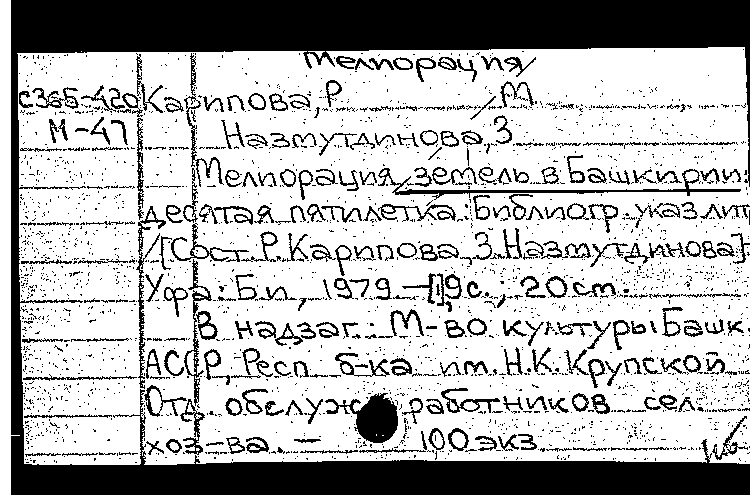 Мелиорация
С365-420 Карипова, Р М
М-47 Назмутдинова, З
Мелиорация земель в Башкирии:
десятая пятилетка: Библиогр. указ. лит
/[Сост. Р. Карипова, З. Назмутдинова].
Уфа: Б.и, 1979.-[1],9с.; 20 ст.
В надзаг.: М-во культуры Башк.
АССР, Респ. б-ка им. Н.К. Крупской
Отд. обслуж работников сел.
хоз-ва. – 100 экз.